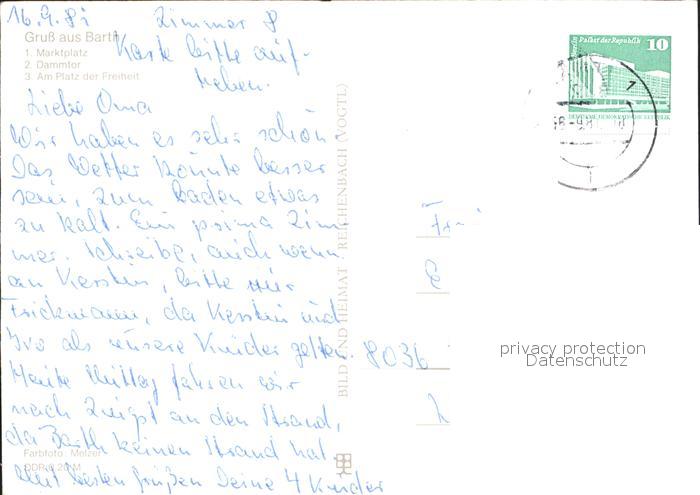 16.9.81 Zimmer 8
Gruß aus Barth
1. Marktplatz
2. Dammtor
3. Am Platz der Freiheit
Karte bitte auf-
heben.
Liebe Oma
Wir haben es sehr schön
Das Wetter könnte besser
sein, zum baden etwas
zu kalt. Ein prima Zim-
mer. Schreibe, auch wenn
an Kerstin, bitte nur
Frickmann, da Kerstin und
Ivo als unsere Kinder gelten.
Heute Mittag fahren wir
nach Zingst an den Strand,
da Barth keinen Strand hat.
Mit besten Grüßen Deine 4 Kinder
Farbfoto: Melzer
DDR 0,20 M
BILD UND HEIMAT REICHENBACH (VOGTL)
Berlin Palast der Republik
10
DEUTSCHE DEMOKRATISCHE REPUBLIK
8036
privacy protection
Datenschutz